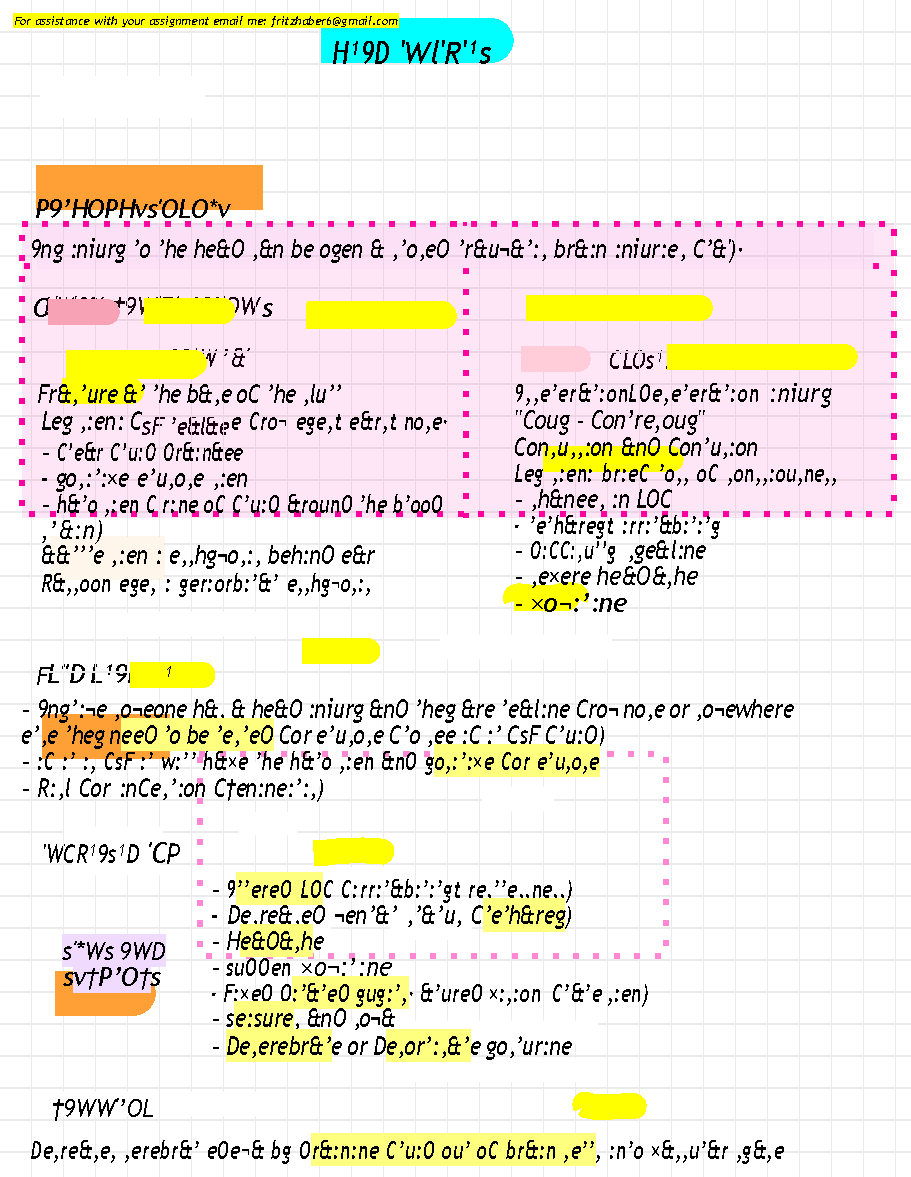 For assistance with your assignment email me: fritzhaber6@gmail.com
H¹9D 'Wl'R'¹s
P9’HOPHvs'OLO*v
9ng :niurg ’o ’he he&O ,&n be ogen & ,’o,eO ’r&u¬&’:, br&:n :niur:e, C’&')·
CLOs¹
Fr&,’ure &’ ’he b&,e oC ’he ,lu’’
9,,e’er&’:onLOe,e’er&’:on :niurg
Leg ,:en: CSF ’e&l&,e Cro¬ ege,t e&r,t no,e·
"Coug - Con’re,oug"
- C’e&r C’u:O Or&:n&ee
Con,u,,:on &nO Con’u,:on
- go,:’:×e e’u,o,e ,:en
Leg ,:en: br:eC ’o,, oC ,on,,:ou,ne,,
- h&’o ,:en C r:ne oC C’u:O &rounO ’he b’ooO
- ,h&nee, :n LOC
,’&:n)
· ’e’h&regt :rr:’&b:’:’g
&&’’’e ,:en : e,,hg¬o,:, beh:nO e&r
- O:CC:,u’’g ,ge&l:ne
R&,,oon ege, : ger:orb:’&’ e,,hg¬o,:,
- ,e×ere he&O&,he
- ×o¬:’:ne
- 9ng’:¬e ,o¬eone h&, & he&O :niurg &nO ’heg &re ’e&l:ne Cro¬ no,e or ,o¬ewhere
e’,e ’heg neeO ’o be ’e,’eO Cor e’u,o,e C’o ,ee :C :’ CsF C’u:O)
- :C :’ :, CsF :’ w:’’ h&×e ’he h&’o ,:en &nO go,:’:×e Cor e’u,o,e
- R:,l Cor :nCe,’:on C†en:ne:’:,)
'WCR¹9s¹D 'CP
- 9’’ereO LOC C:rr:’&b:’:’gt re,’’e,,ne,,)
- De,re&,eO ¬en’&’ ,’&’u, C’e’h&reg)
- He&O&,he
s'*Ws 9WD
- suOOen ×o¬:’:ne
sv†P’O†s
· F:×eO O:’&’eO gug:’,· &’ureO ×:,:on C’&’e ,:en)
- se:sure, &nO ,o¬&
- De,erebr&’e or De,or’:,&’e go,’ur:ne
†9WW'’OL
De,re&,e, ,erebr&’ eOe¬& bg Or&:n:ne C’u:O ou’ oC br&:n ,e’’, :n’o ×&,,u’&r ,g&,e